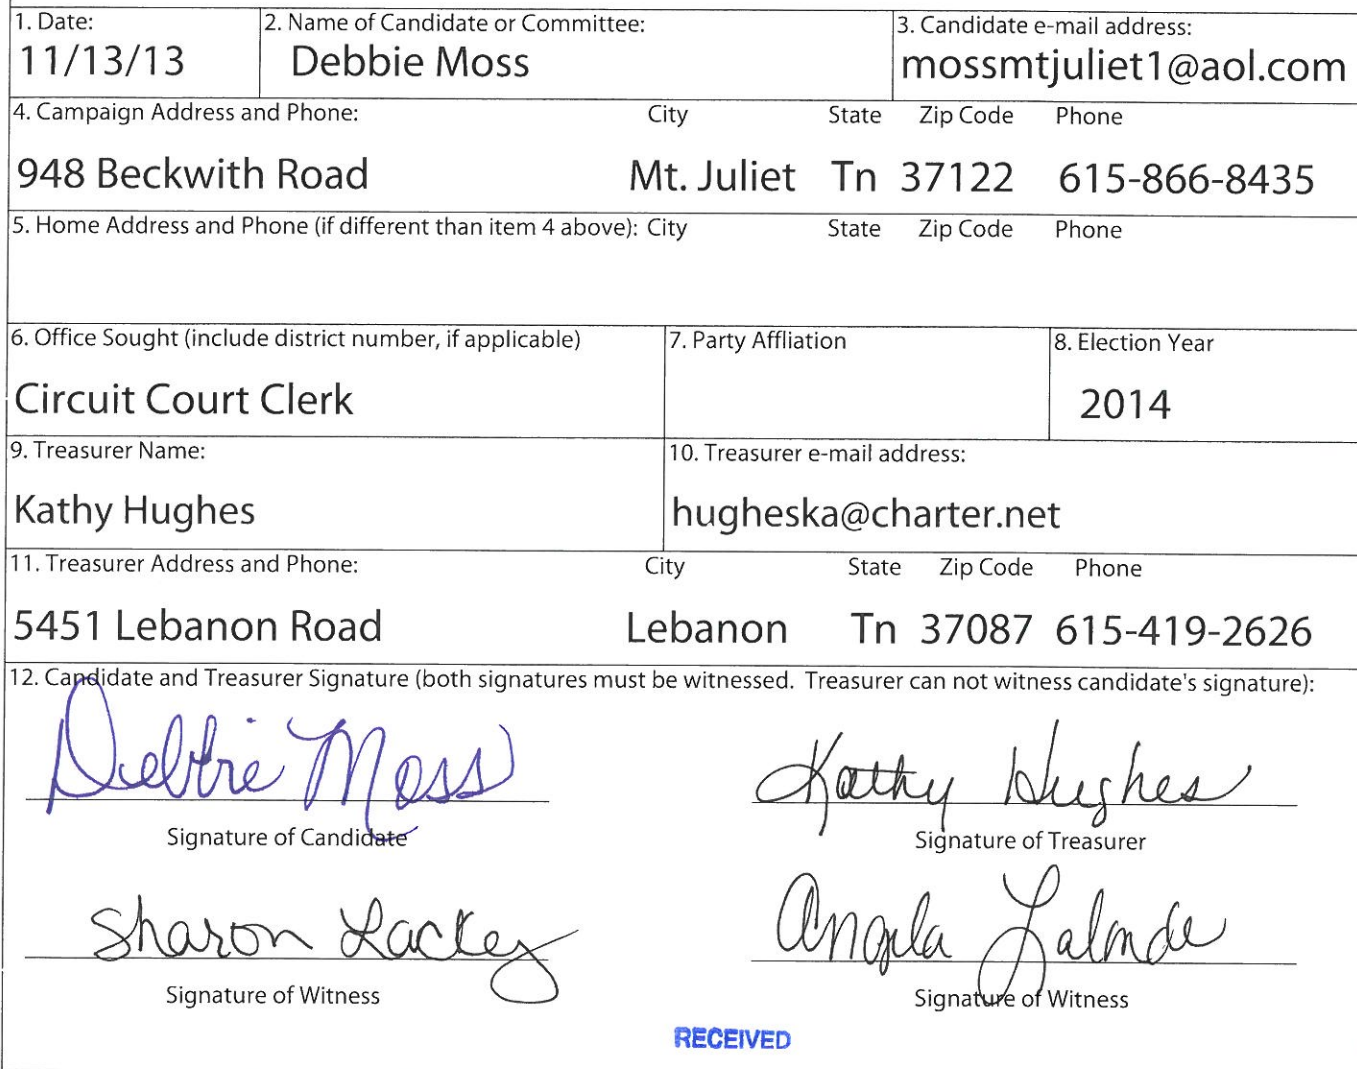 1. Date: 2. Name of Candidate or Committee: 3. Candidate e-mail address:
11/13/13 Debbie Moss mossmtjuliet1@aol.com
4. Campaign Address and Phone: City State Zip Code Phone
948 Beckwith Road Mt. Juliet Tn 37122 615-866-8435
5. Home Address and Phone (if different than item 4 above): City State Zip Code Phone
6. Office Sought (include district number, if applicable) 7. Party Affliation 8. Election Year
Circuit Court Clerk 2014
9. Treasurer Name: 10. Treasurer e-mail address:
Kathy Hughes hugheska@charter.net
11. Treasurer Address and Phone: City State Zip Code Phone
5451 Lebanon Road Lebanon Tn 37087 615-419-2626
12. Candidate and Treasurer Signature (both signatures must be witnessed. Treasurer can not witness candidate's signature):
Debbie Moss Kathy Hughes
Signature of Candidate Signature of Treasurer
Sharon Lackey Angela Lalonde
Signature of Witness Signature of Witness
RECEIVED